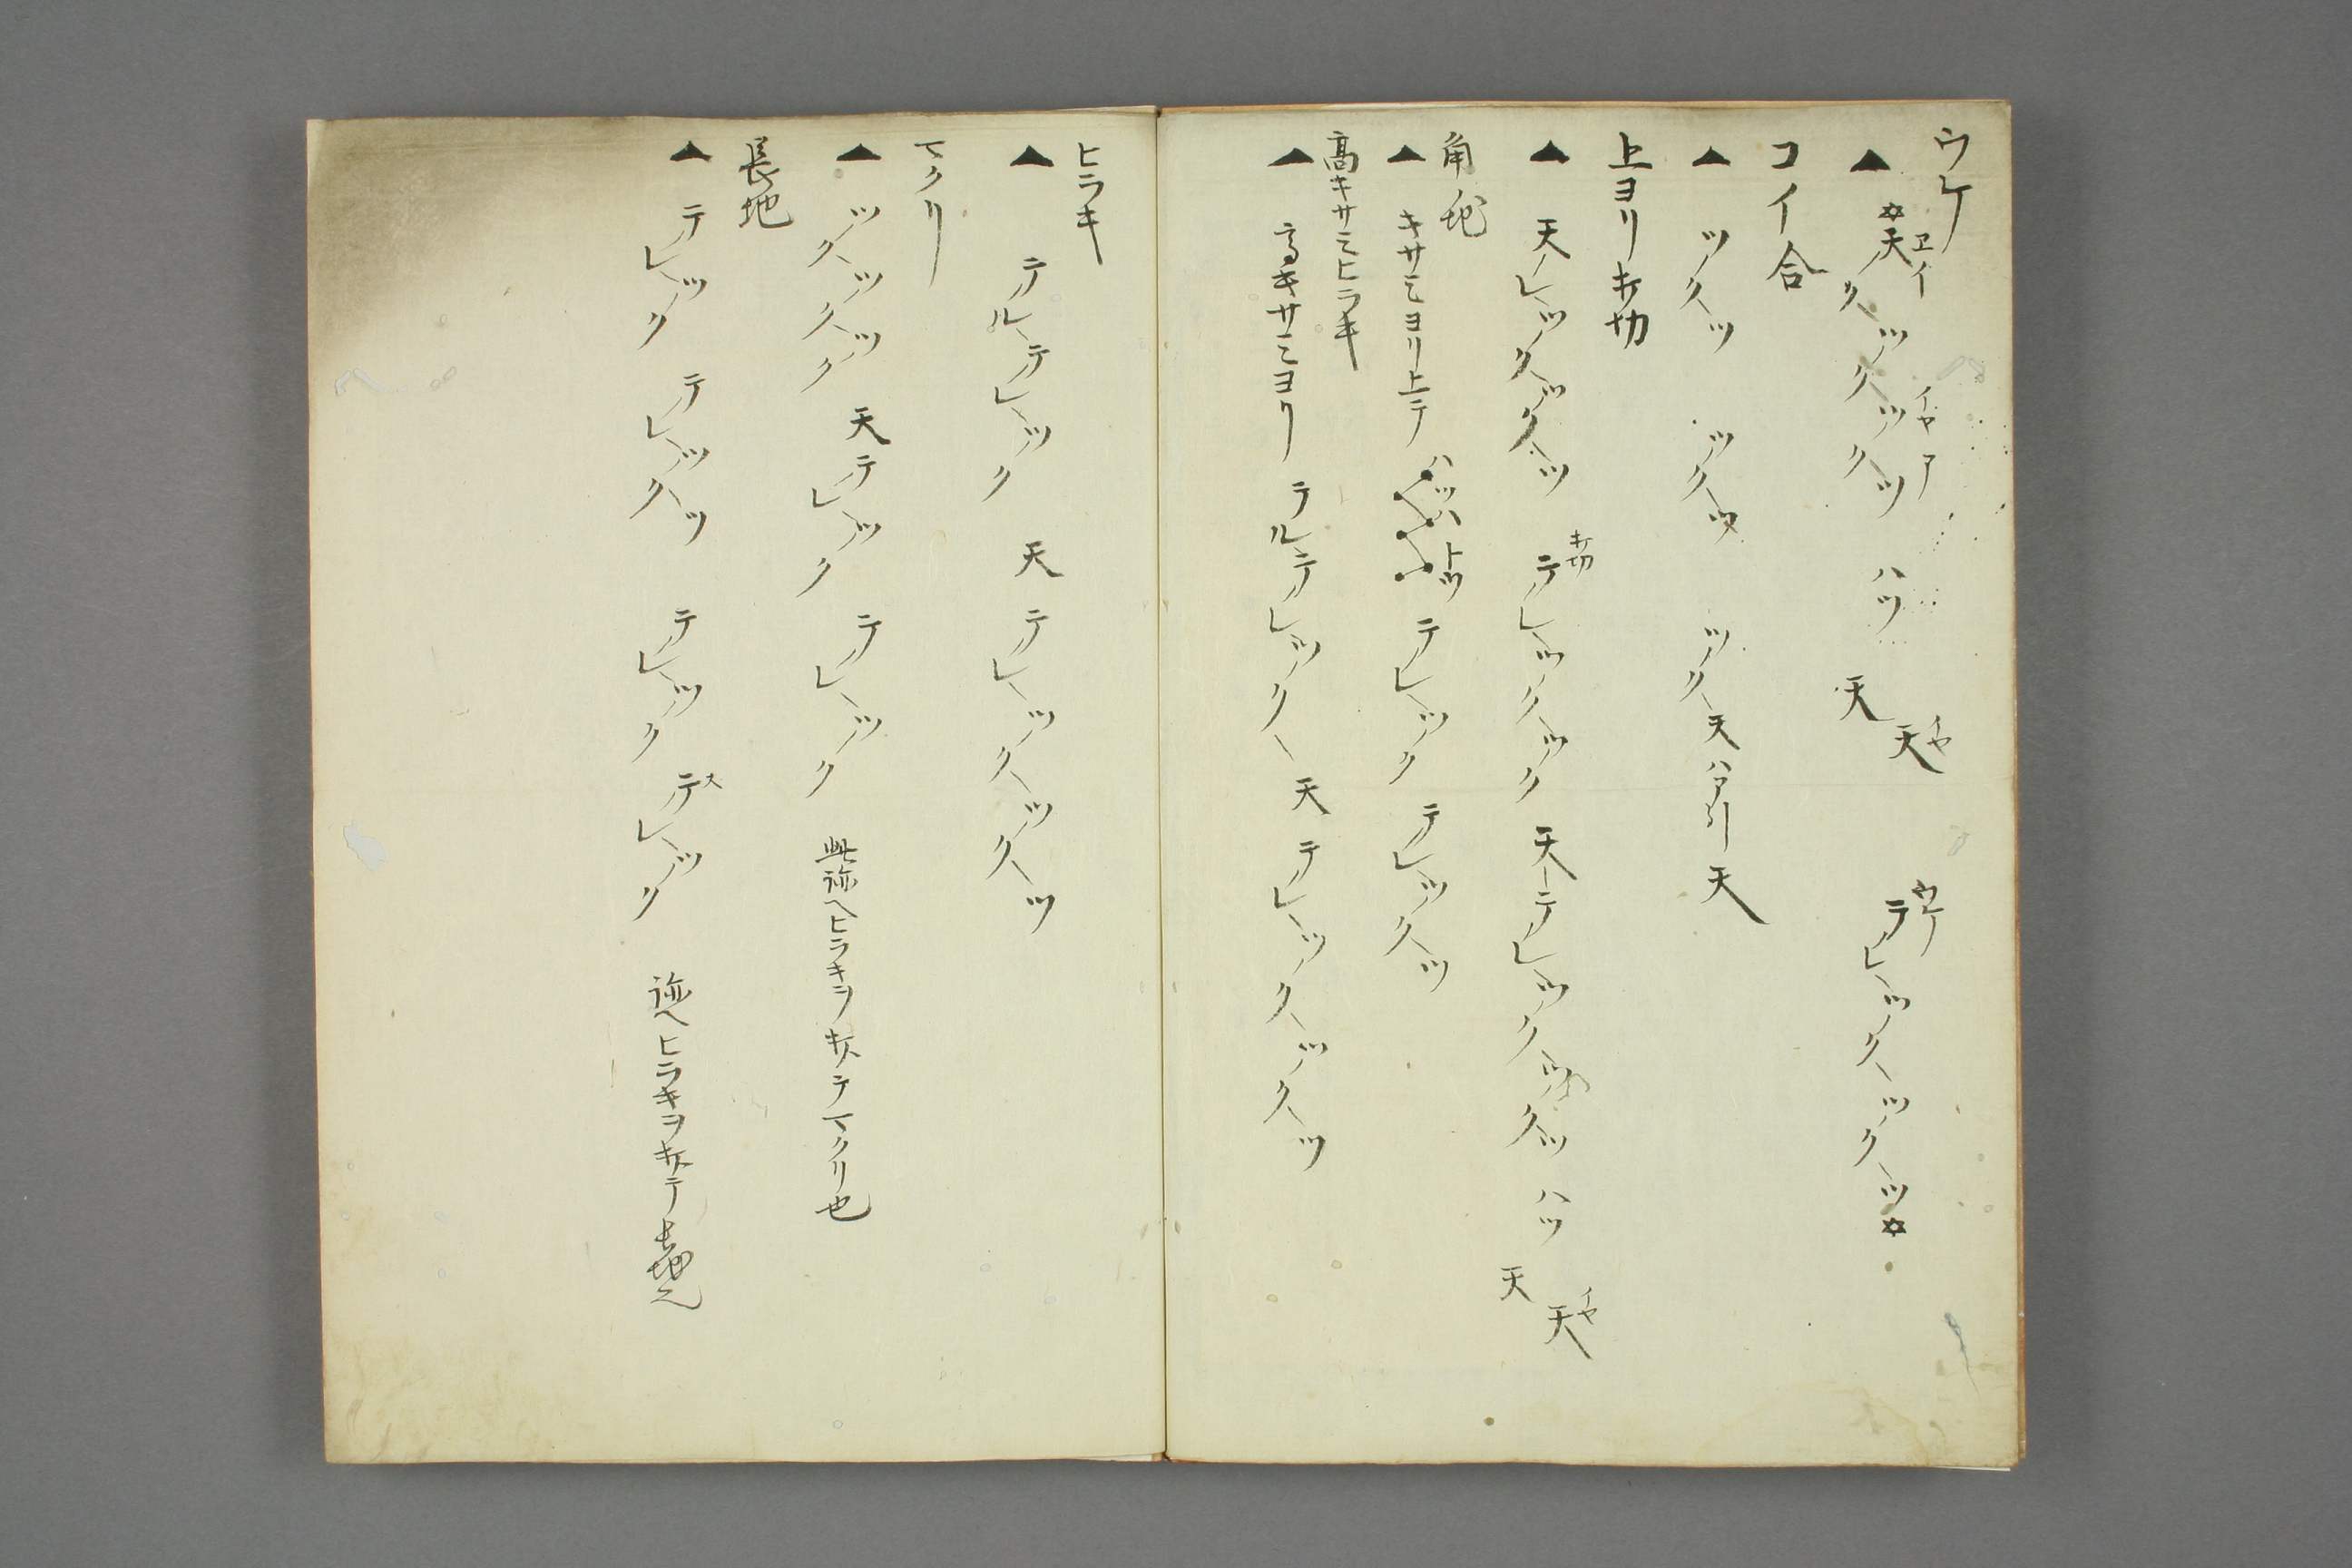 ウケ
▲ ✡天クツクツクツ ハツ 天天 テレツクツクツ✡
ヱイ イヤア イヤ ウケ
コイ合
▲ ツクツ ツクツ ツク天ハア引天
上ヨリキサ切
▲ 天レツクツクツ テレツクツク 天テレツクツクツ ハツ 天天
キサ切 イヤ
角地
▲ キサミヨリ上テ ハツハ上ツ テレツク テレツクツ
高キサミヒラキ
▲ 高キサミヨリ テルテレツク 天 テレツクツクツ
ヒラキ
▲ テルテレツク 天 テレツクツクツ
マクリ
▲ ツクツクツク 天テレツク テレツク 此跡ヘヒラキヲ テマクリ也
長地
▲ テレツク テレツクツ テレツク テレツク 跡ヘヒラキヲ テ長地